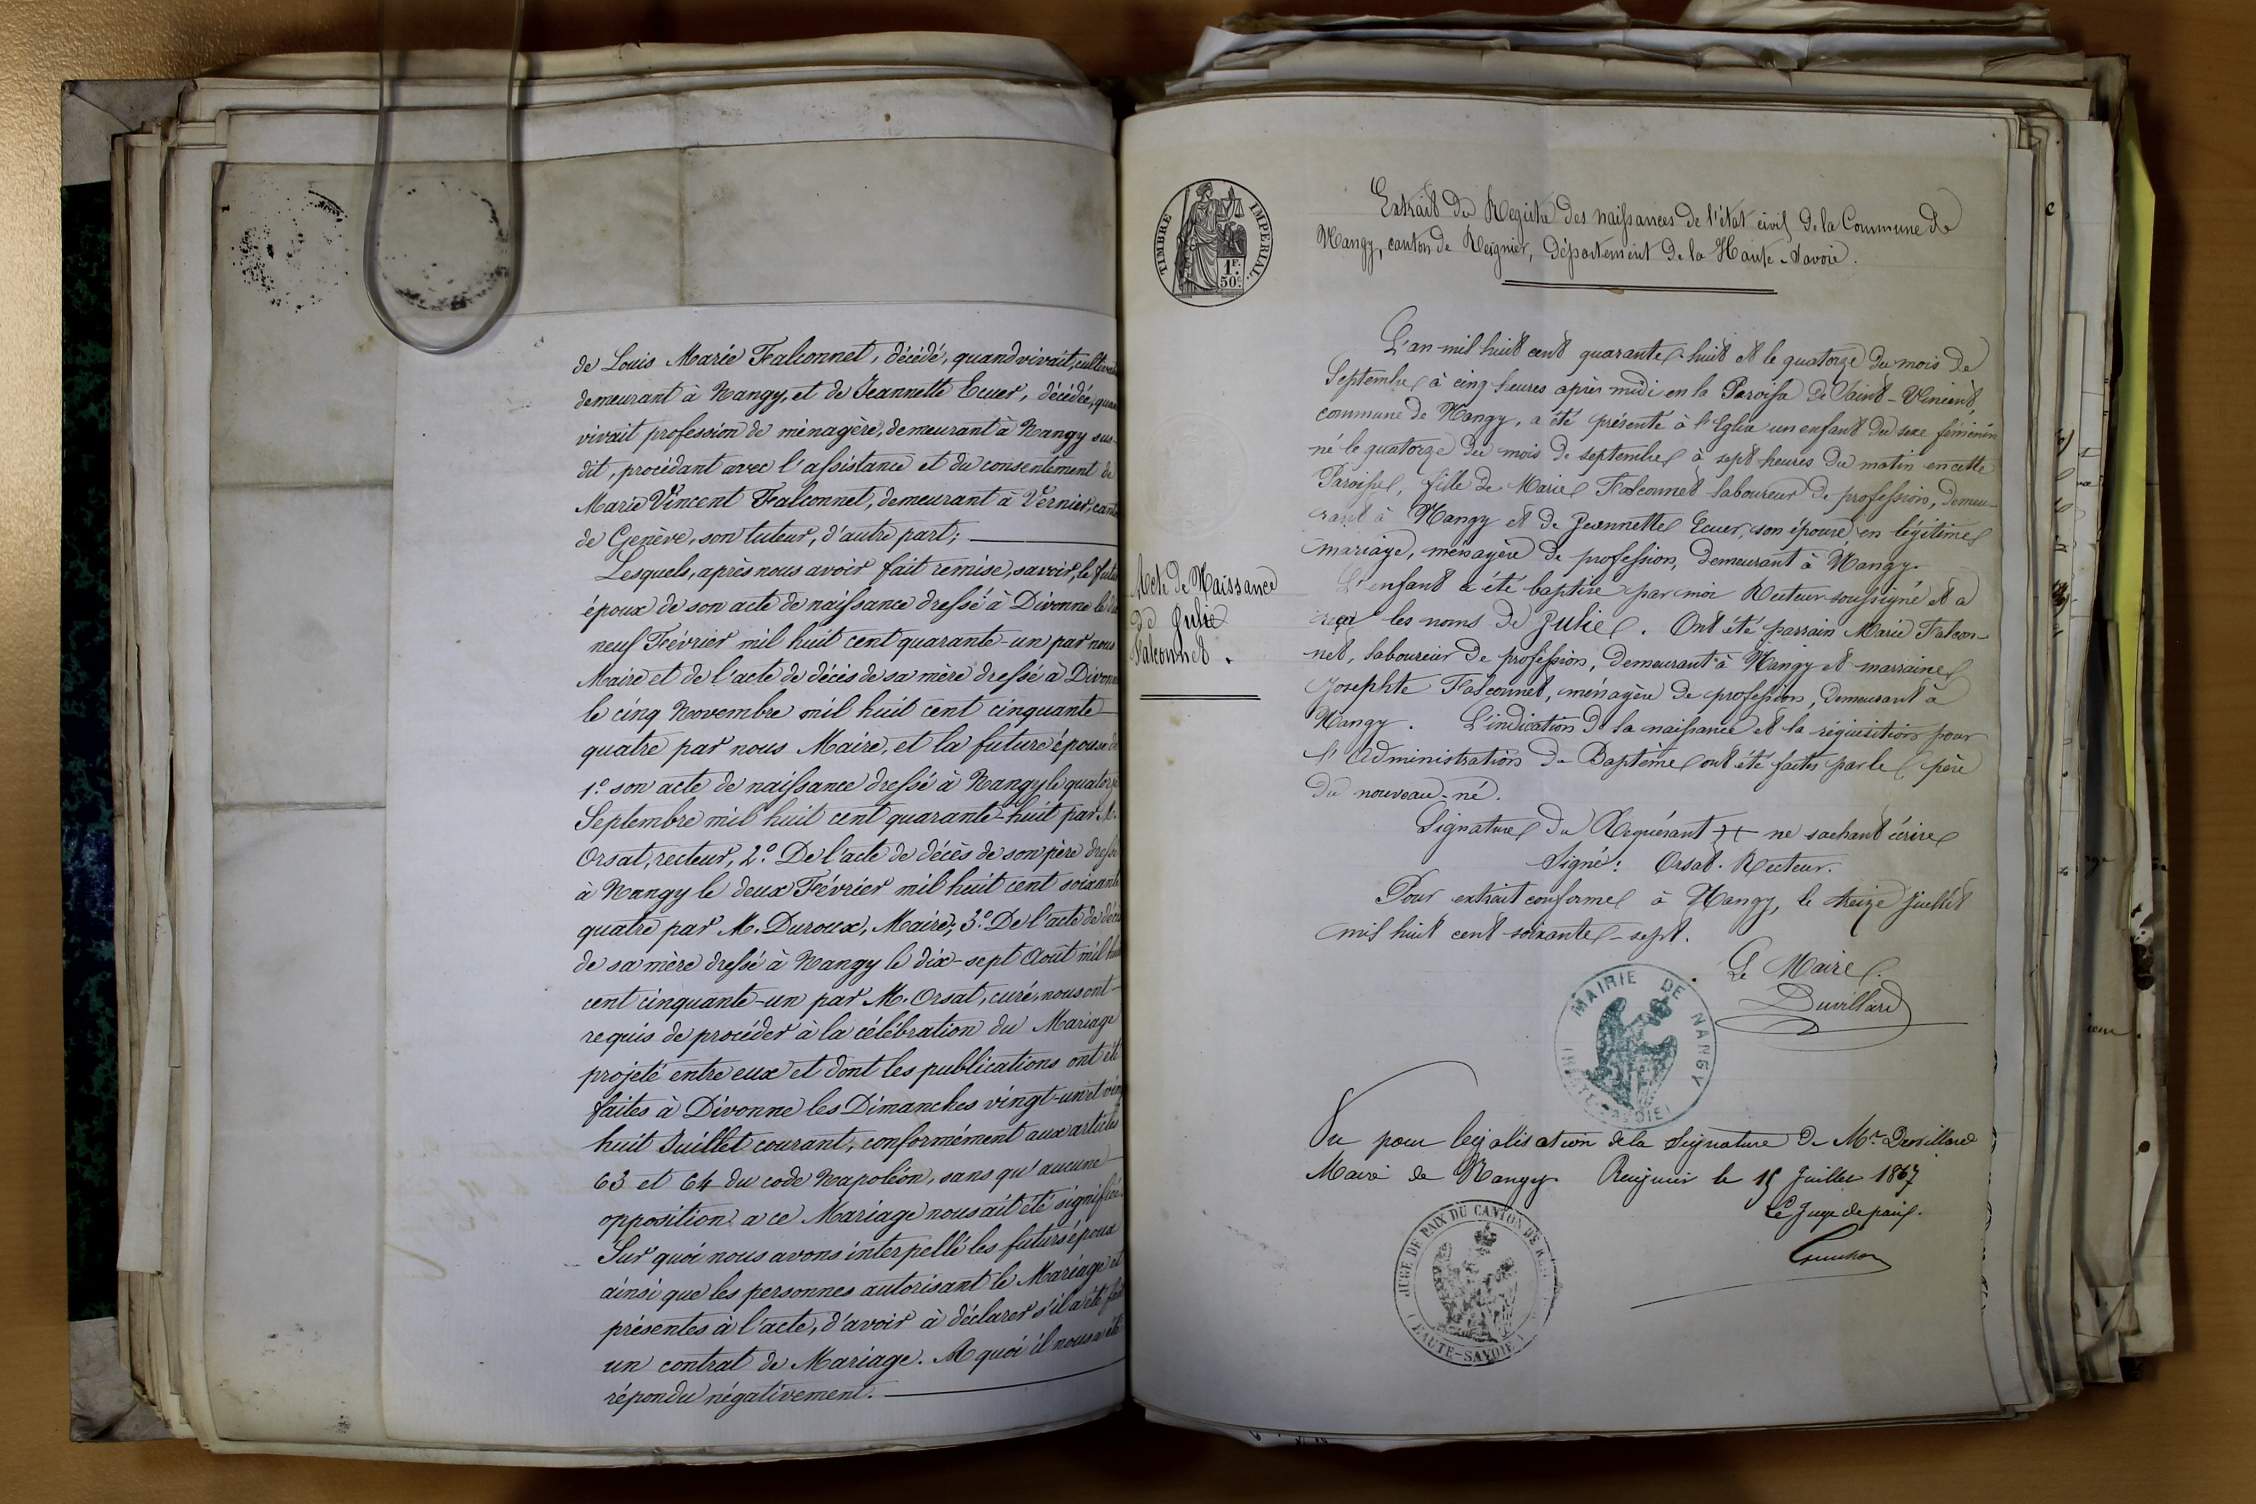 de Louis Marie Falconnet, décédé, quand vivait, cultiv
demeurant à Nangy, et de Jeannette Ecuer, décédée, quan
vivait profession de ménagère, demeurant à Nangy sus-
dit, procédant avec l'assistance et du consentement de
Marie Vincent Falconnet, demeurant à Vernier, cant
de Genève, son tuteur, d'autre part;
Lesquels, après nous avoir fait remise, savoir, le futur
époux de son acte de naissance dressé à Divonne le
neuf Février mil huit cent quarante-un par nous
Maire et de l'acte de décès de sa mère dressé à Divonne
le cinq Novembre mil huit cent cinquante
quatre par nous Maire, et la future épouse de
1.° son acte de naissance dressé à Nangy le quatorze
Septembre mil huit cent quarante-huit par M.
Orsat, recteur, 2.° De l'acte de décès de son père dressé
à Nangy le deux Février mil huit cent soixante
quatre par M. Duroux, Maire; 3.° De l'acte de décès
de sa mère dressé à Nangy le dix-sept Août mil hui
cent cinquante-un par M. Orsat, curé, nous ont
requis de procéder à la célébration du Mariage
projeté entre eux et dont les publications ont été
faites à Divonne les Dimanches vingt-un et vin
huit Juillet courant, conformément aux articles
63 et 64 du code Napoléon, sans qu'aucune
opposition a ce Mariage nous ait été signifiée.
Sur quoi nous avons interpellé les futurs époux
ainsi que les personnes autorisant le Mariage et
présentes à l'acte, d'avoir à déclarer s'il a été fait
un contrat de Mariage. A quoi il nous a été
répondu négativement.
TIMBRE IMPERIAL.
1F.
50c.
Extrait du Registre des naissances de l'état civil de la Commune de
Nangy, canton de Reignier, département de la Haute-Savoie.
Acte de Naissance
de Julie
Falconnet.
L'an mil huit cent quarante-huit et le quatorze du mois de
Septembre à cinq heures après midi en la Paroisse de Saint-Vincent,
commune de Nangy, a été présenté à l'Eglise un enfant du sexe féminin
né le quatorze du mois de septembre à sept heures du matin en cette
Paroisse, fille de Marie Falconnet laboureur de profession, demeu-
rant à Nangy et de Jeannette Ecuer, son épouse en légitime
mariage, ménagère de profession, demeurant à Nangy.
L'enfant a été baptisé par moi Recteur soussigné et a
reçu les noms de Julie. Ont été parrain Marie Falcon-
net, laboureur de profession, demeurant à Nangy et marraine
Josephte Falconnet, ménagère de profession, demeurant à
Nangy. L'indication de la naissance et la réquisition pour
l'Administration du Baptême ont été faites par le père
du nouveau-né.
Signature du Requérant ne sachant écrire
Signé: Orsat. Recteur.
Pour extrait conforme à Nangy, le treize Juillet
mil huit cent soixante-sept.
Le Maire.
Duvillard
MAIRIE DE NANGY
Vu pour légalisation de la signature de Mr. Duvillard
Maire de Nangy. Reignier le 15 Juillet 1867
Le Juge de paix.
JUGE DE PAIX DU CANTON DE
(HAUTE-SAVOIE)